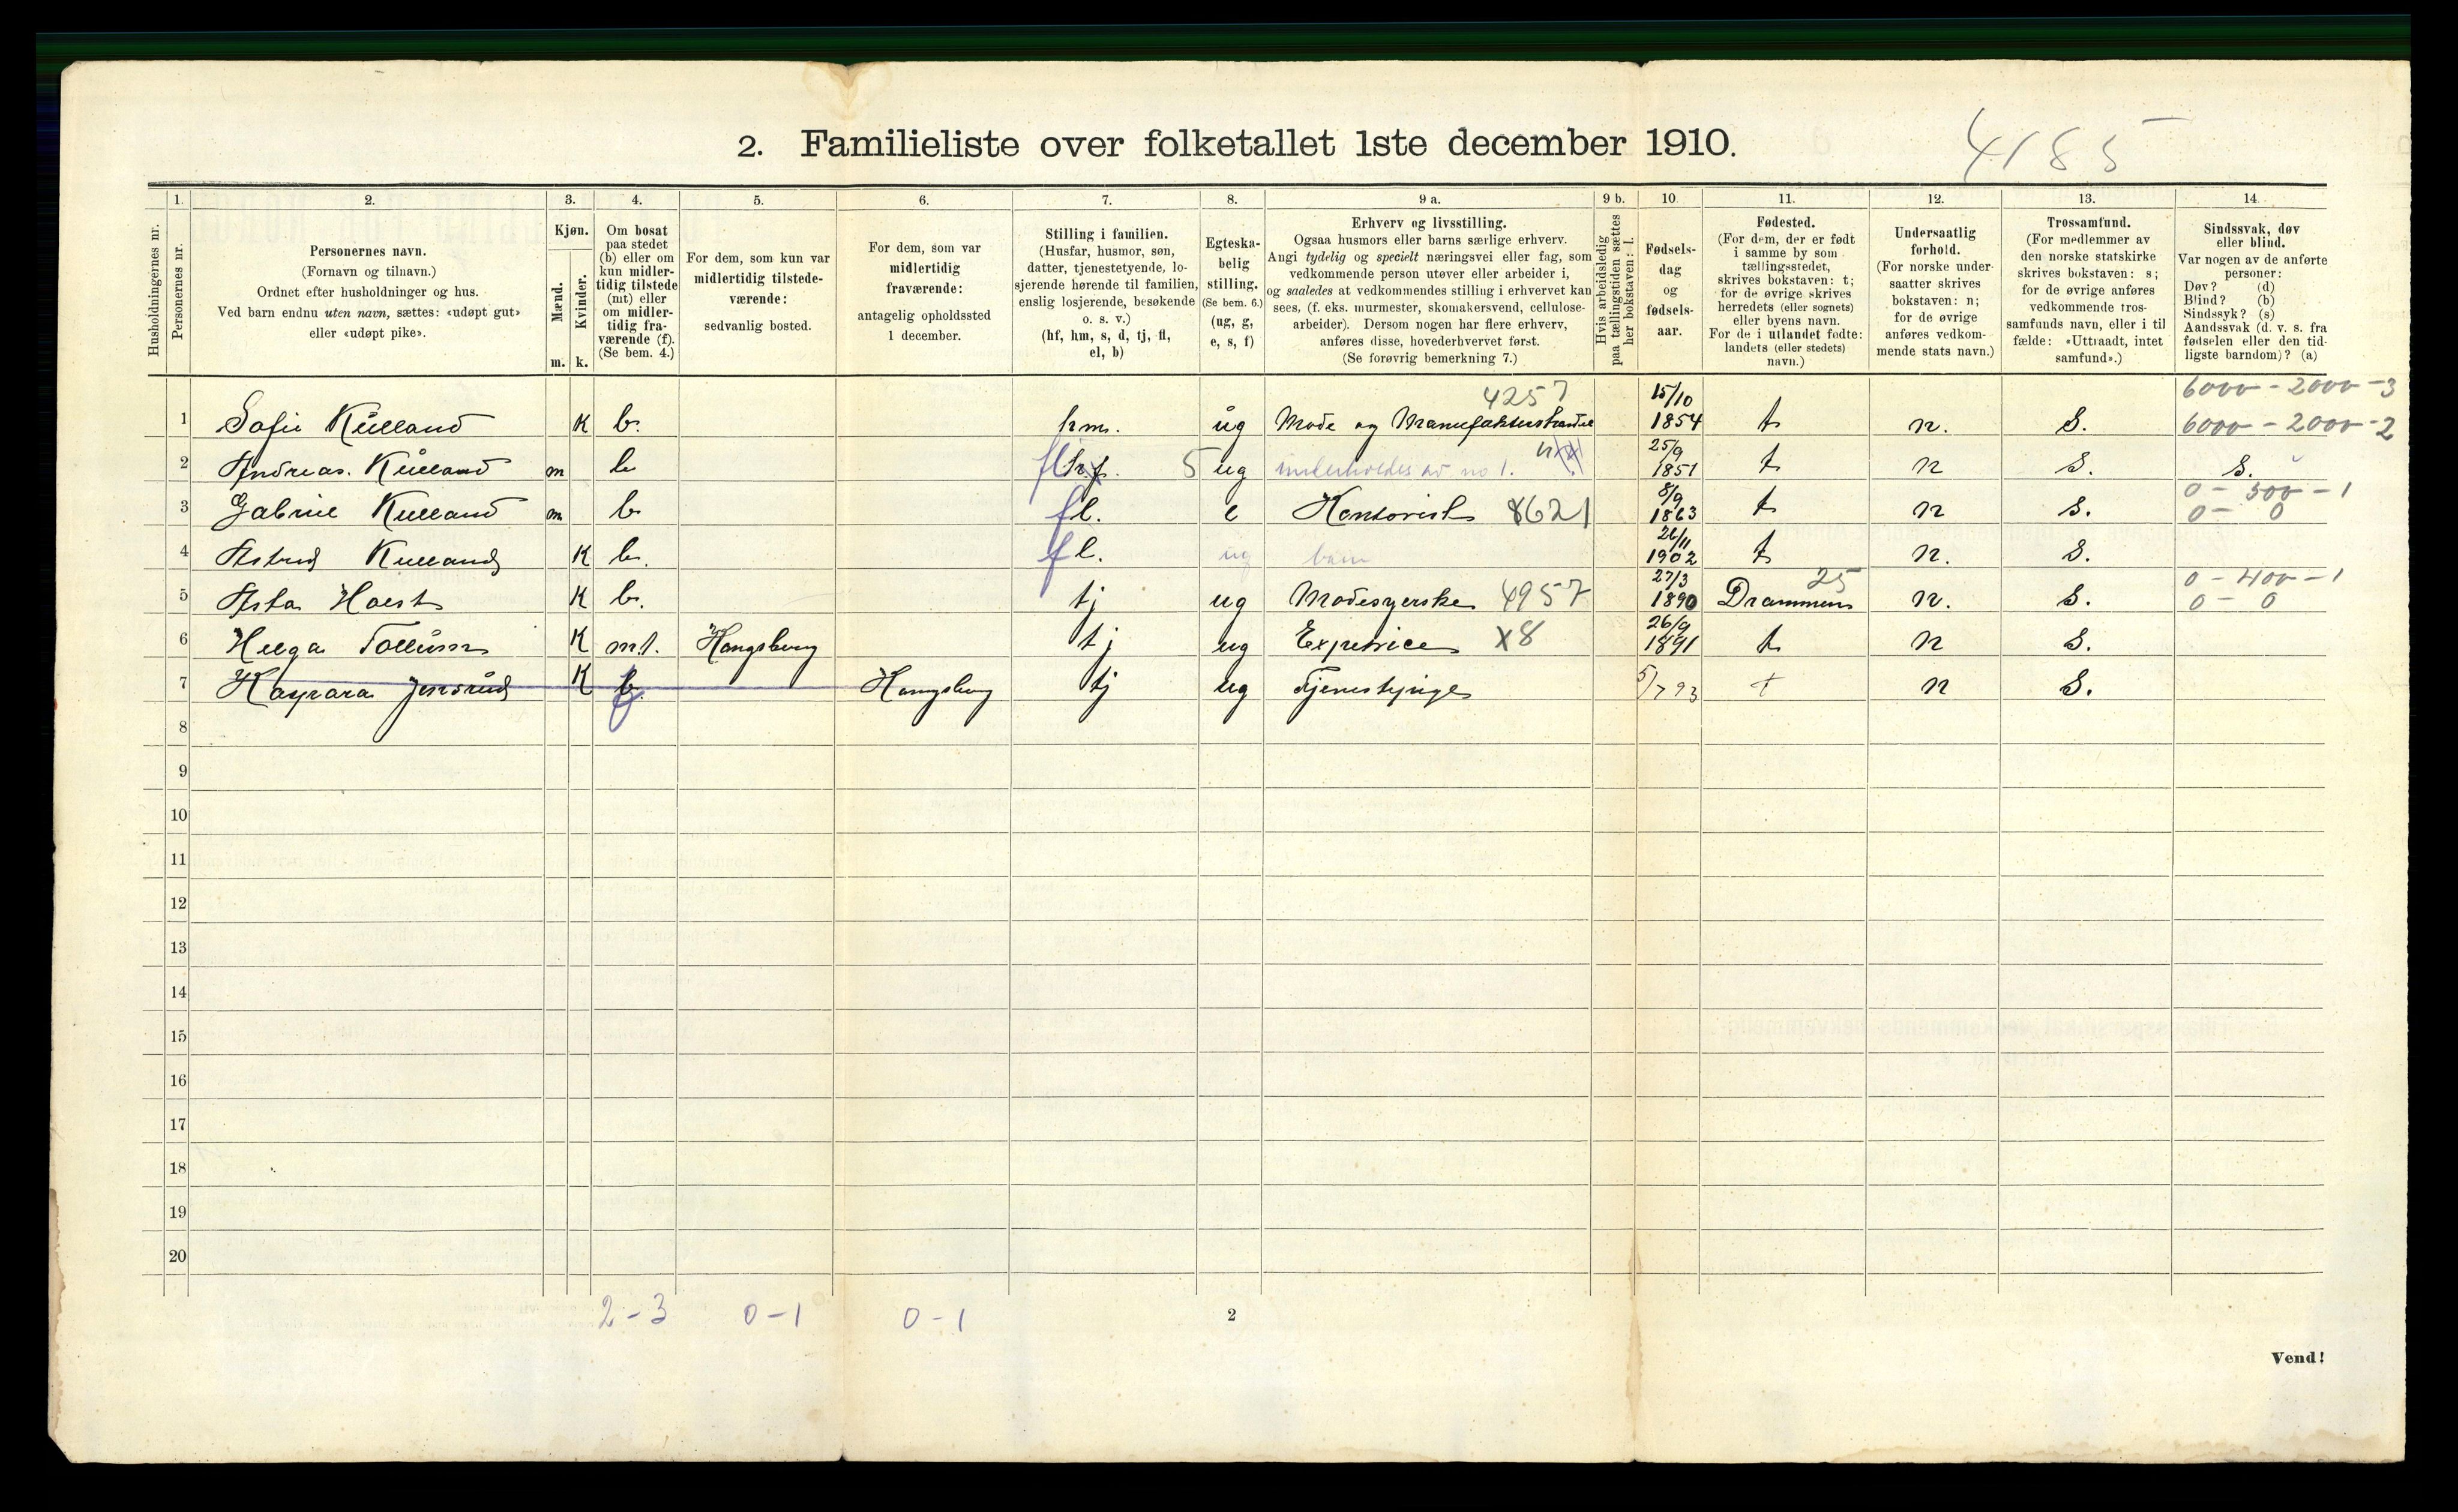 4185
2. Familieliste over folketallet 1ste december 1910.
Husholdningernes nr.
1. Personernes nr.
2. Personernes navn. (Fornavn og tilnavn.) Ordnet efter husholdninger og hus. Ved barn endnu uten navn, sættes: «udøpt gut» eller «udøpt pike».
3. Kjøn. Mænd. m. Kvinder. k.
4. Om bosat paa stedet (b) eller om kun midlertidig tilstede (mt) eller om midlertidig fraværende (f). (Se bem. 4.)
5. For dem, som kun var midlertidig tilstedeværende: sedvanlig bosted.
6. For dem, som var midlertidig fraværende: antagelig opholdssted 1 december.
7. Stilling i familien. (Husfar, husmor, søn, datter, tjenestetyende, losjerende hørende til familien, enslig losjerende, besøkende o. s. v.) (hf, hm, s, d, tj, fl, el, b)
8. Egteskabelig stilling. (Se bem. 6.) (ug, g, e, s, f)
9 a. Erhverv og livsstilling. Ogsaa husmors eller barns særlige erhverv. Angi tydelig og specielt næringsvei eller fag, som vedkommende person utøver eller arbeider i, og saaledes at vedkommendes stilling i erhvervet kan sees, (f. eks. murmester, skomakersvend, cellulosearbeider). Dersom nogen har flere erhverv, anføres disse, hovederhvervet først. (Se forøvrig bemerkning 7.)
9 b. Hvis arbeidsledig paa tællingstiden sættes her bokstaven: l.
10. Fødselsdag og fødselsaar.
11. Fødested. (For dem, der er født i samme by som tællingsstedet, skrives bokstaven: t; for de øvrige skrives herredets (eller sognets) eller byens navn. For de i utlandet fødte: landets (eller stedets) navn.)
12. Undersaatlig forhold. (For norske undersaatter skrives bokstaven: n; for de øvrige anføres vedkommende stats navn.)
13. Trossamfund. (For medlemmer av den norske statskirke skrives bokstaven: s; for de øvrige anføres vedkommende trossamfunds navn, eller i tilfælde: «Uttraadt, intet samfund».)
14. Sindssvak, døv eller blind. Var nogen av de anførte personer: Døv? (d) Blind? (b) Sindssyk? (s) Aandssvak (d. v. s. fra fødselen eller den tidligste barndom)? (a)
6000 - 2000 - 3
1 Sofie Kielland K b. hm. ug Mode og Manufakturhandel 4257 15/10 1854 t n. S. 6000 - 2000 - 2
2 Andreas. Kielland m b fl hf. 5 ug underholdes av no 1. 25/9 1851 t n S. S.
3 Gabriel Kielland m b fl. e Kontorist 8621 8/9 1863 t n S. 0 - 500 - 1 0 - 0
4 Astrid Kielland K b. fl. ug barn 26/11 1902 t n. S.
5 Asta Hoest K b. tj ug Modesyerske 4957 27/3 1890 Drammen 25 n. S. 0 - 400 - 1 0 - 0
6 Helga Tollum K m.t. Kongsberg tj ug Expetrice X8 26/9 1891 t n S.
7 K b. f Kongsberg tj ug Tjenestepige 5/7 93 t n S.
8
9
10
11
12
13
14
15
16
17
18
19
20
2 - 3 0 - 1 0 - 1
2
Vend!